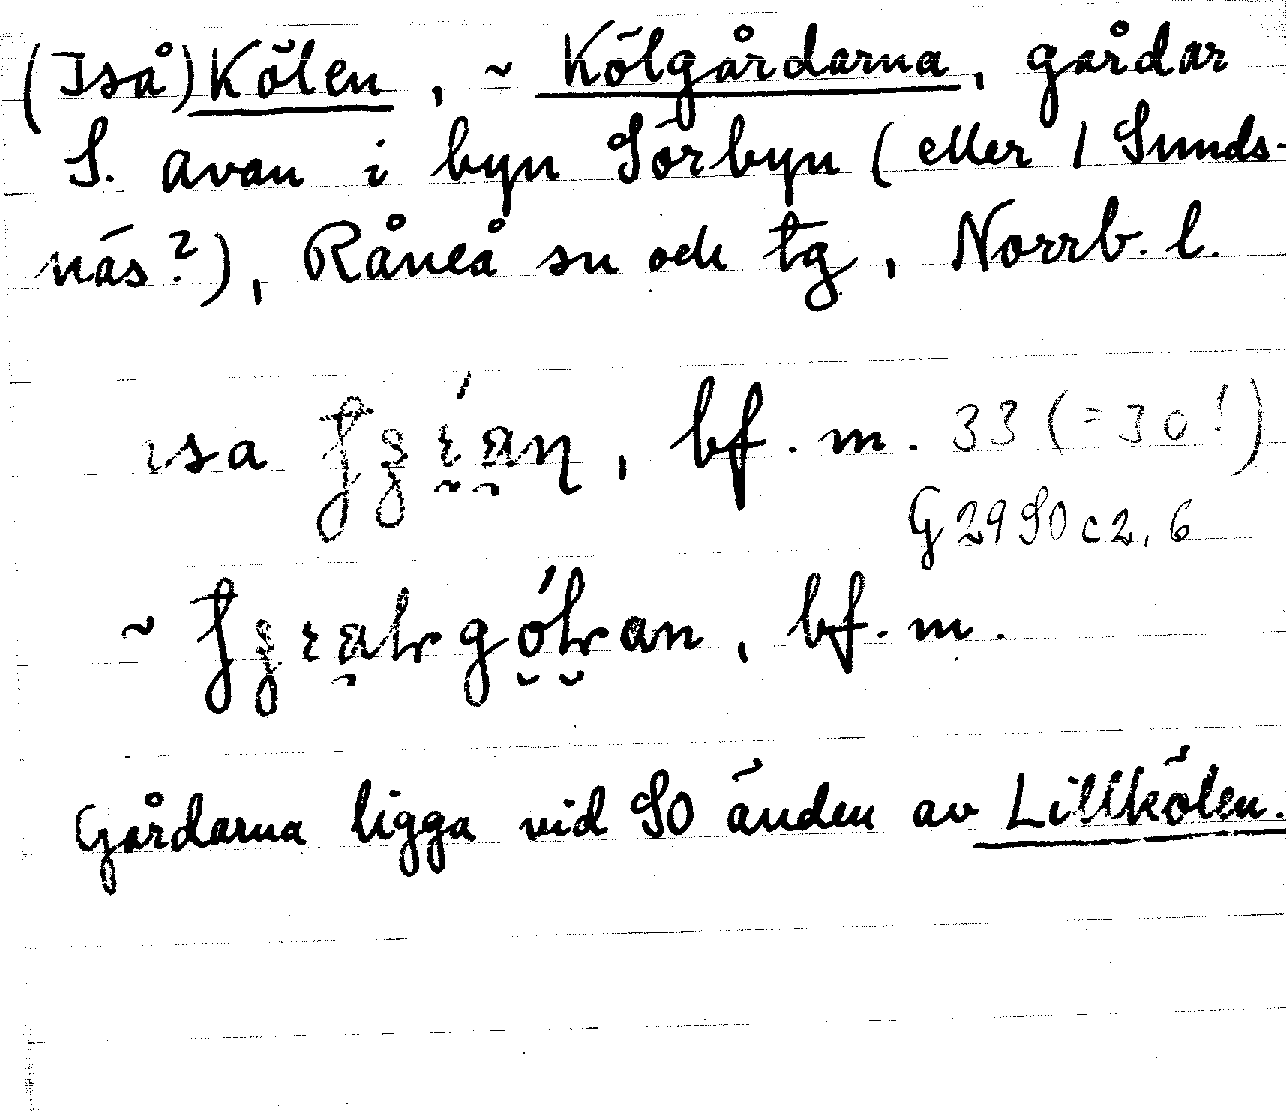 (Iså) Kölen, ~ Kölgårdarna, gårdar
S. avan i byn Sörbyn (eller 1 Sunds-
näs?), Råneå sn och tg, Norrb. l.
isa , bf. m. 33 (=30!)
G 29 SO c 2, 6
~ , bf. m.
Gårdarna ligga vid SO änden av Lillkölen.